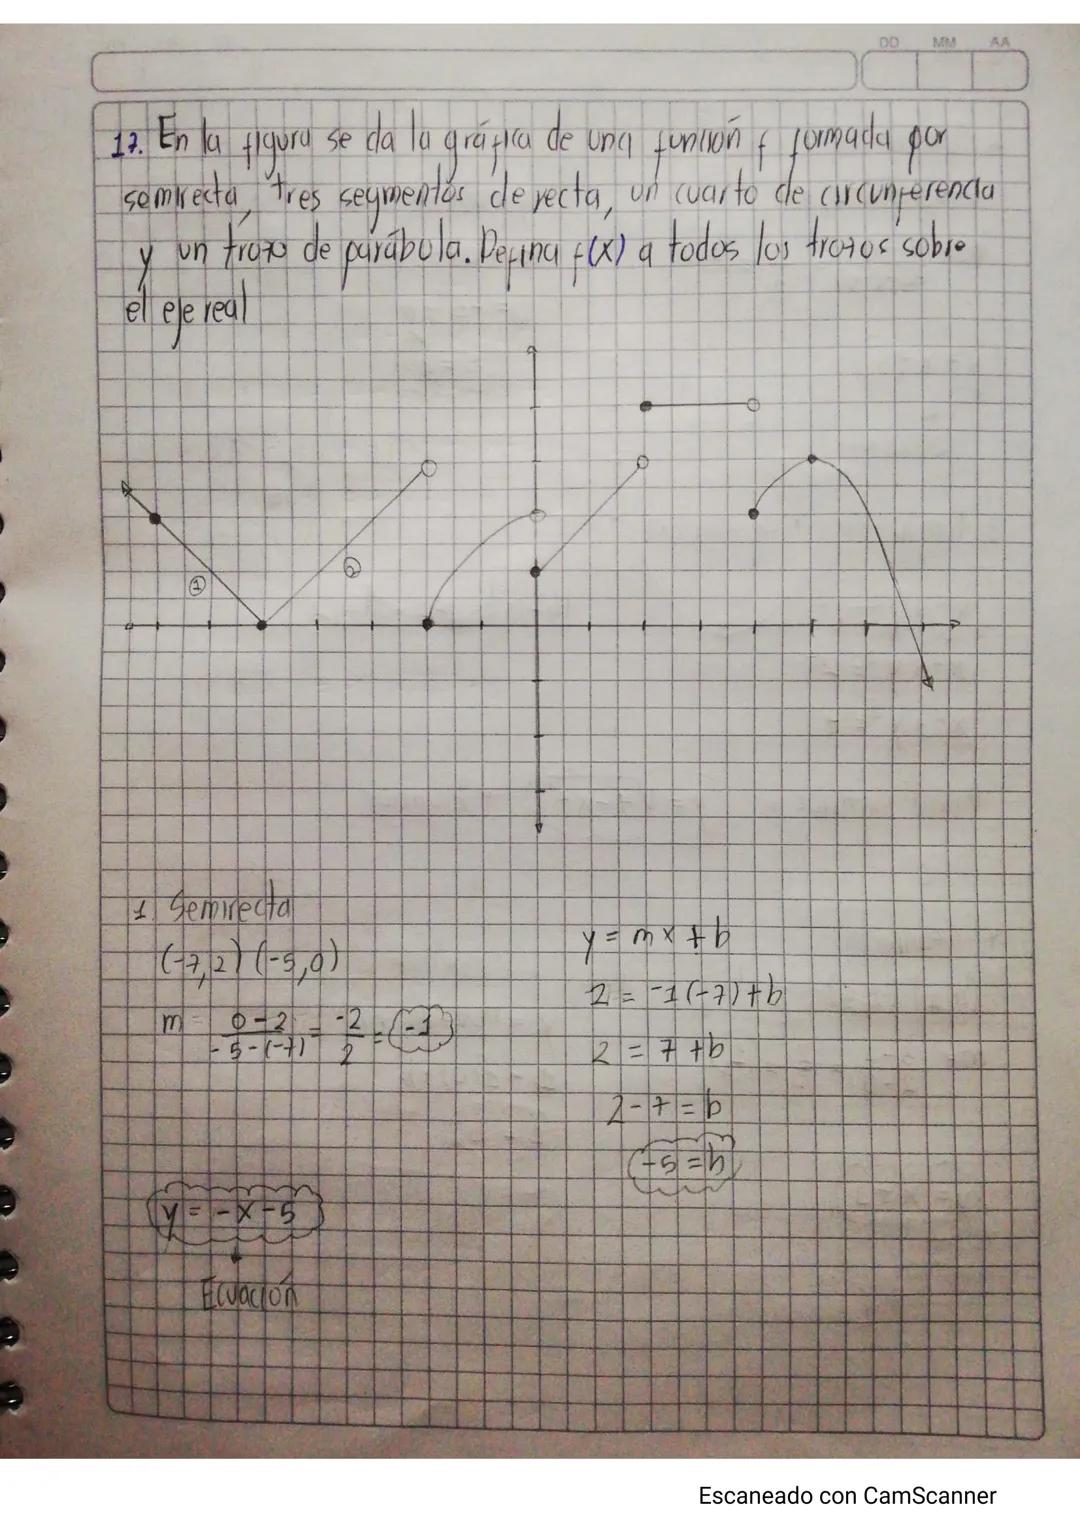 DD MM AA
17. En la figura se da la gráfica de una función f formada por
semirecta, tres segmentos de recta, un cuarto de circunferencia
y un trozo de parábola. Defina f(x) a todos los trozos sobre
el eje real
1
2
1. Semirecta
(-7,2) (-5,0)
m = 0-2 / -5-(-7) = -2 / 2 = -1
y = mx+b
2 = -1(-7)+b
2 = 7+b
2-7=b
-5=b
y = -x-5
Ecuación
Escaneado con CamScanner